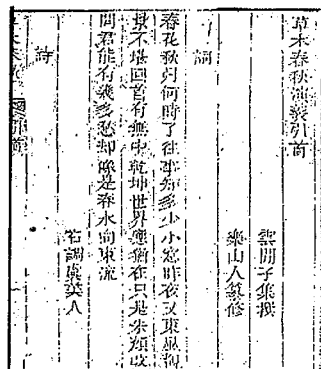 草木春秋演義引首
雲間子集撰
樂山人纂修
詞
春花秋月何時了往事知多少小窓昨夜又東風
景不堪回首有無中乾坤世界應猶在只是朱顏改
問君能有幾多愁却像是春水向東流
右調虞美人
詩
引首